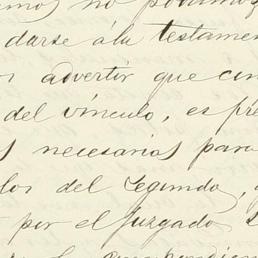 no podimos
darse á la testamen
advertir que cin
del vínculo, es pre
necesarios para
los del segundo,
por el Juzgado